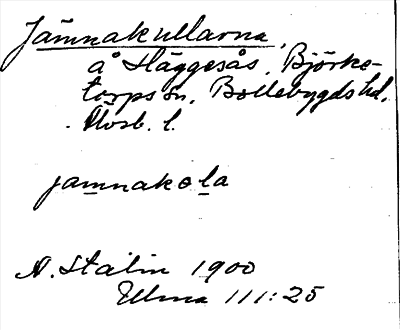 Jämnakullarna,
å Häggesås, Björke-
torps sn, Bollebygds hd,
Älvsb. l.
jamnakola
N. Stålin 1900
Ulma 111:25